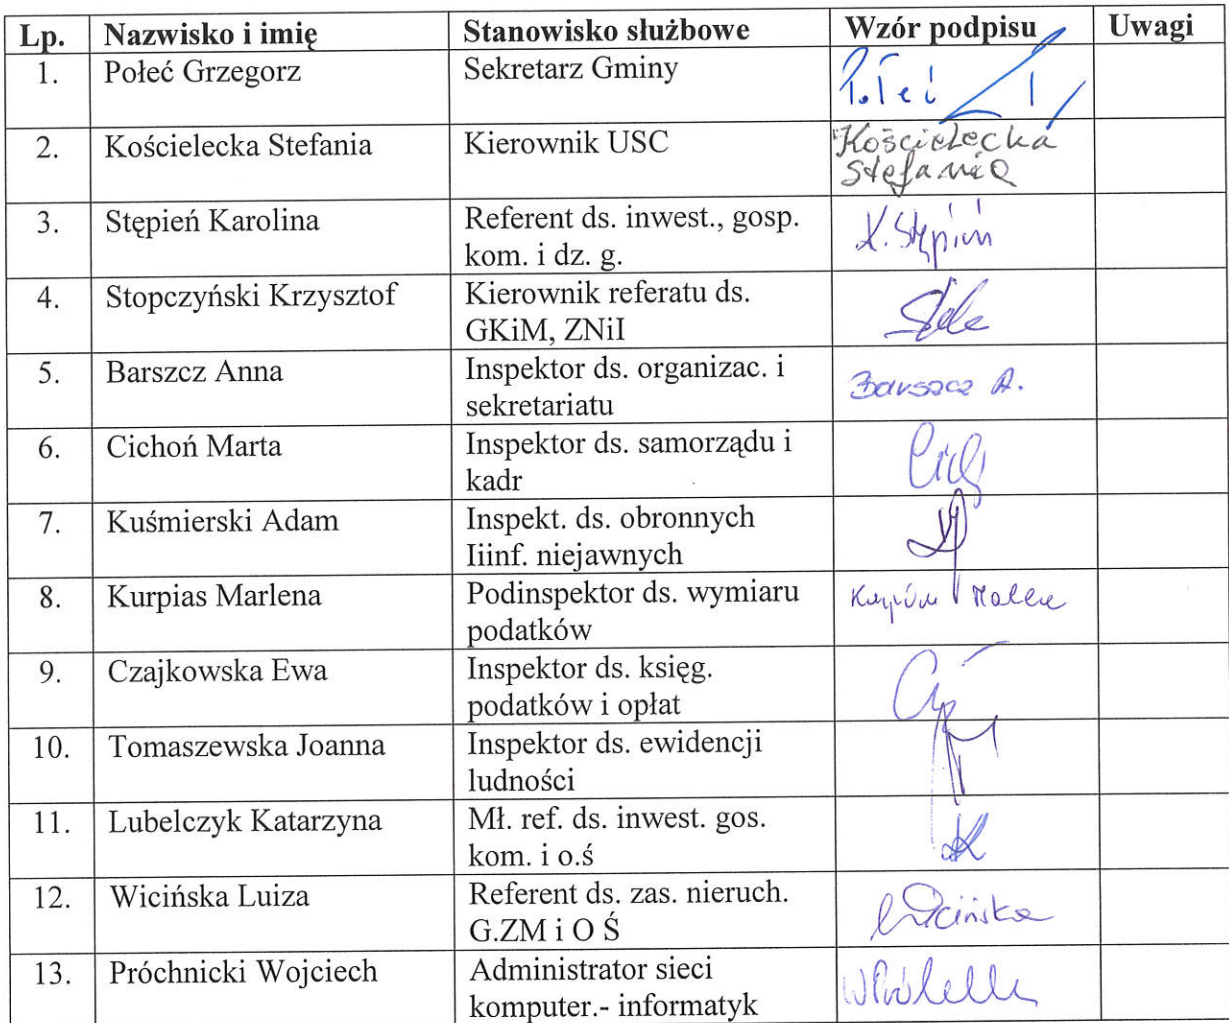 Lp. Nazwisko i imię Stanowisko służbowe Wzór podpisu Uwagi
1. Połeć Grzegorz Sekretarz Gminy
2. Kościelecka Stefania Kierownik USC Kościelecka
Stefania
3. Stępień Karolina Referent ds. inwest., gosp. K. Stępień
kom. i dz. g.
4. Stopczyński Krzysztof Kierownik referatu ds.
GKiM, ZNiI
5. Barszcz Anna Inspektor ds. organizac. i Barszcz A.
sekretariatu
6. Cichoń Marta Inspektor ds. samorządu i
kadr
7. Kuśmierski Adam Inspekt. ds. obronnych
Iiinf. niejawnych
8. Kurpias Marlena Podinspektor ds. wymiaru
podatków
9. Czajkowska Ewa Inspektor ds. księg.
podatków i opłat
10. Tomaszewska Joanna Inspektor ds. ewidencji
ludności
11. Lubelczyk Katarzyna Mł. ref. ds. inwest. gos.
kom. i o.ś
12. Wicińska Luiza Referent ds. zas. nieruch. Wicińska
G.ZM i O Ś
13. Próchnicki Wojciech Administrator sieci
komputer.- informatyk